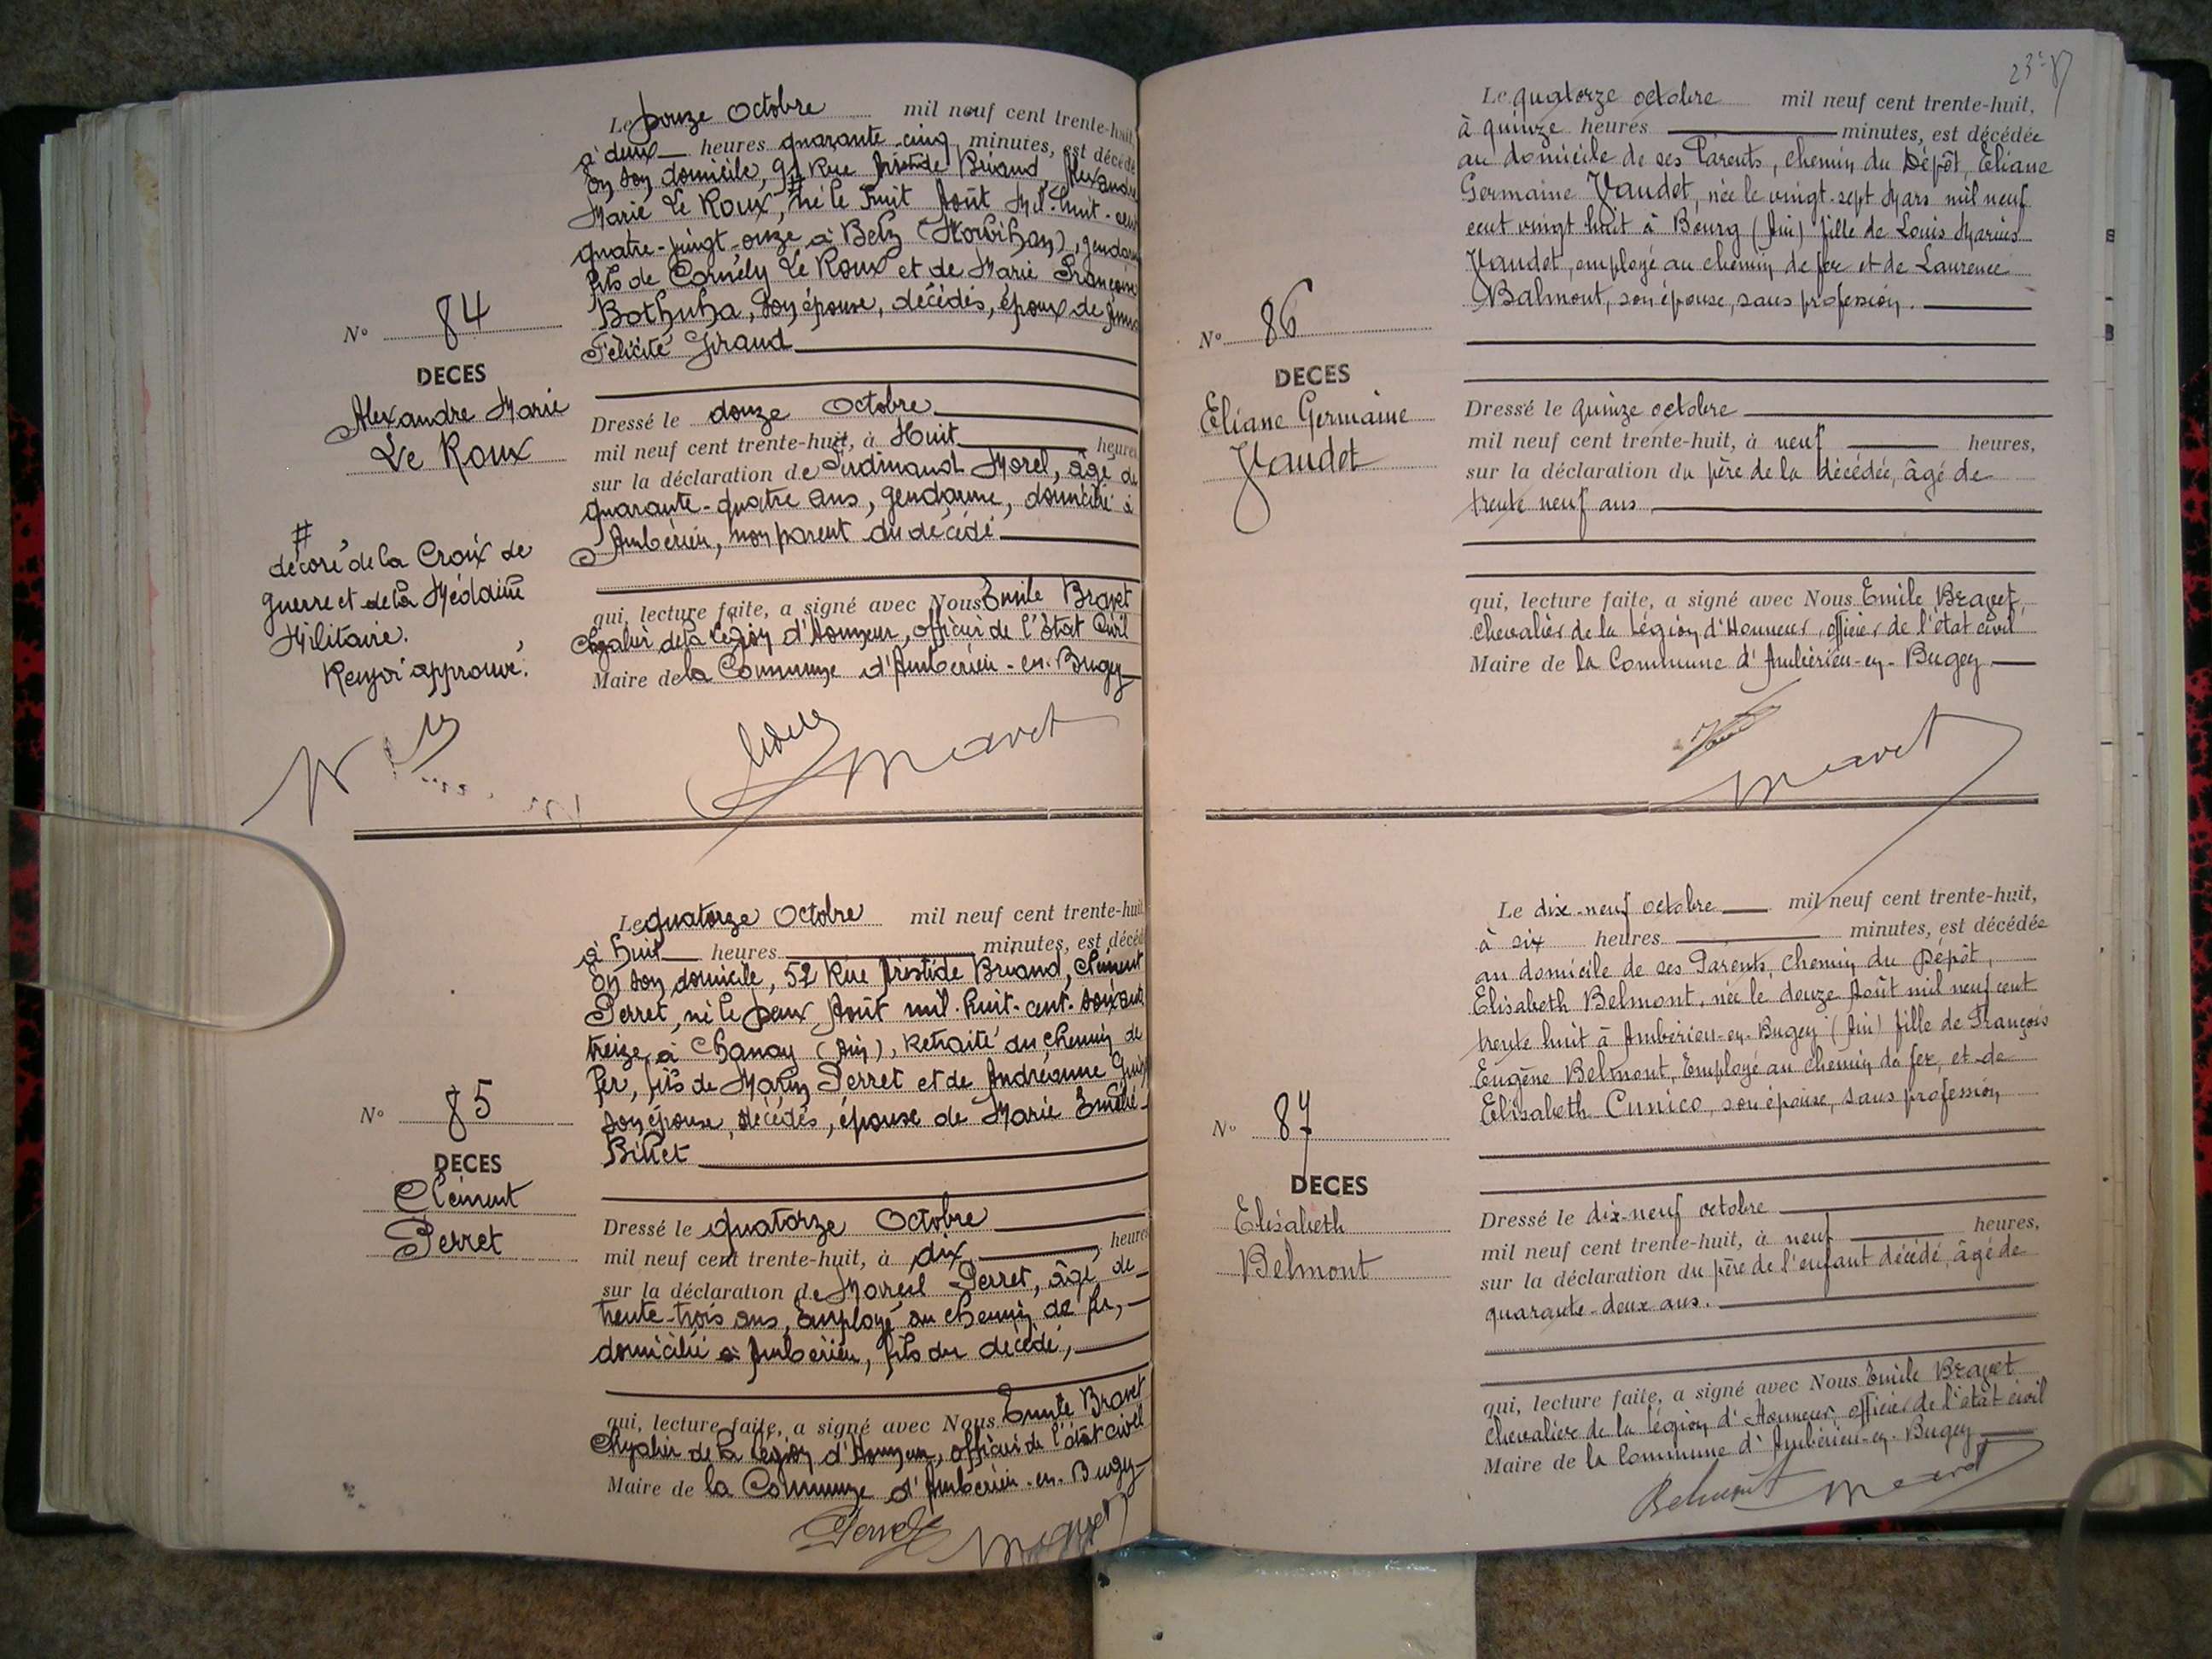 Le douze Octobre mil neuf cent trente-huit,
à deux heures quarante-cinq minutes, est décédé
en son domicile, 91 Rue Aristide Briand, Alexandre
Marie Le Roux, # né le huit Août mil-huit-cent
quatre-vingt-onze à Belz (Morbihan), gendarme
fils de Cornély Le Roux et de Marie Françoise
Bothuha, son épouse, décédés, époux de
Félicité Giraud
N° 84
DECES
Alexandre Marie
Le Roux
#
décoré de la Croix de
guerre et de la Médaille
Militaire.
Renvoi approuvé.
Dressé le douze Octobre
mil neuf cent trente-huit, à Huit heures
sur la déclaration de Ferdinand Morel, âgé de
quarante-quatre ans, gendarme, domicilié à
Ambérieu, non parent du décédé
qui, lecture faite, a signé avec Nous Emile Bravet
Chevalier de la Légion d'Honneur, officier de l'état Civil
Maire de la Commune d'Ambérieu-en-Bugey
Le quatorze Octobre mil neuf cent trente-huit
à huit heures minutes, est décédé
en son domicile, 52 Rue Aristide Briand, Clément
Perret, né le deux Août mil-huit-cent-soixante
treize à Chanay (Ain), Retraité du chemin de
fer, fils de Marin Perret et de Andréanne
son épouse, décédés, épouse de Marie Emélie
Billet
N° 85
DECES
Clément
Perret
Dressé le quatorze Octobre
mil neuf cent trente-huit, à dix heures
sur la déclaration de Marcel Perret, âgé de
trente-trois ans, employé au chemin de fer,
domicilié à Ambérieu, fils du décédé,
qui, lecture faite, a signé avec Nous Emile Bravet
Chevalier de la Légion d'Honneur, officier de l'état civil
Maire de la Commune d'Ambérieu-en-Bugey
Perret
Bravet
Le quatorze octobre mil neuf cent trente-huit,
à quinze heures minutes, est décédée
au domicile de ses Parents, chemin du Dépôt, Eliane
Germaine Vaudet, née le vingt-sept Mars mil neuf
cent vingt huit à Bourg (Ain) fille de Louis Marius
Vaudet, employé au chemin de fer et de Laurence
Balmont, son épouse, sans profession.
N° 86
DECES
Eliane Germaine
Vaudet
Dressé le quinze octobre
mil neuf cent trente-huit, à neuf heures,
sur la déclaration du père de la décédée, âgé de
trente neuf ans
qui, lecture faite, a signé avec Nous Emile Bravet,
Chevalier de la Légion d'Honneur, officier de l'état civil
Maire de la Commune d'Ambérieu-en-Bugey
Bravet
Le dix-neuf octobre mil neuf cent trente-huit,
à six heures minutes, est décédée
au domicile de ses Parents, chemin du Dépôt,
Elisabeth Belmont, née le douze Août mil neuf cent
trente huit à Ambérieu-en-Bugey (Ain) fille de François
Eugène Belmont, Employé au chemin de fer, et de
Elisabeth Cunico, son épouse, sans profession
N° 87
DECES
Elisabeth
Belmont
Dressé le dix-neuf octobre
mil neuf cent trente-huit, à neuf heures,
sur la déclaration du père de l'enfant décédé, âgé de
quarante-deux ans.
qui, lecture faite, a signé avec Nous Emile Bravet
Chevalier de la Légion d'Honneur, officier de l'état civil
Maire de la Commune d'Ambérieu-en-Bugey
Belmont Bravet